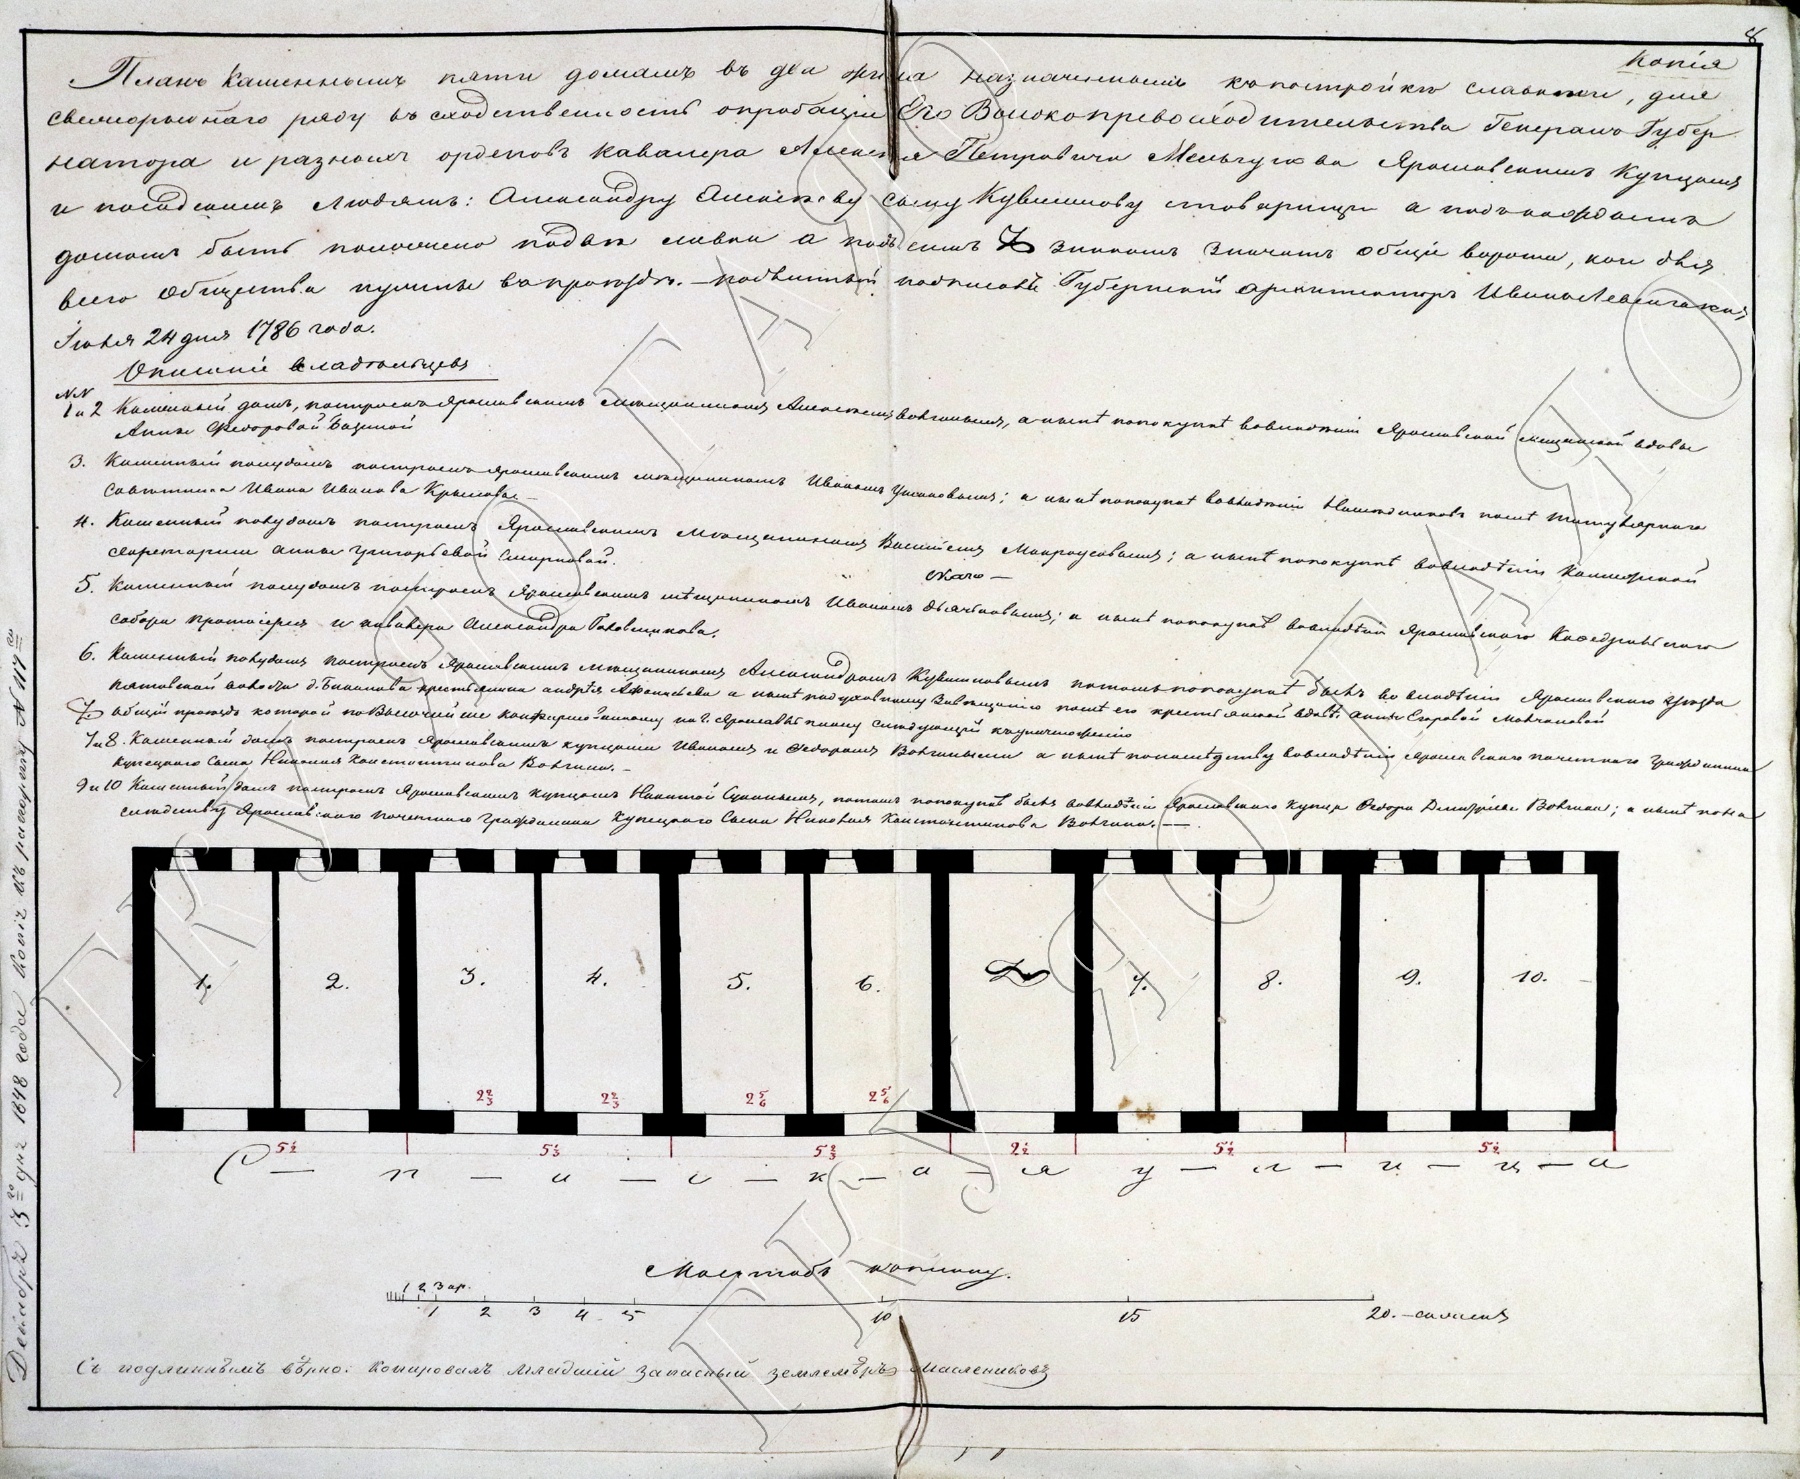 8
Копія
Планъ каменнымъ пяти домамъ въ два жила назначеннымъ къ постройкѣ славками, для
свежорыбнаго ряду въ сходственность опробаціи Его Высокопревосходительства Генералъ Губер
натора и разныхъ орденовъ кавалера Алексѣя Петровича Мельгунова Ярославскимъ Купцамъ
и посадскимъ людямъ: Александру Алексѣеву сыну Кувшинову стоварищи а подъ каждымъ
домомъ быть положено подве лавки а подъ симъ знакомъ значатъ общіе вороты, кои для
всего общества пущены въ проѣздъ. — подлинный подписалъ Губернскій архитекторъ Иванъ Левенгагенъ
Іюня 24 дня 1786 года.
Описаніе владѣльцевъ
NN
1 и 2 Каменный домъ, построенъ Ярославскимъ мѣщаниномъ Алексѣемъ Вохинымъ, а нынѣ попокупкѣ вовладѣніи Ярославской мещанской вдовы
Анны Федоровой
3. Каменный полудомъ построенъ Ярославскимъ мѣщаниномъ Иваномъ; а нынѣ попокупкѣ вовладѣніи Наследниковъ послѣ титулярнаго
совѣтника Ивана Иванова Крылова —
4. Каменный полудомъ построенъ Ярославскимъ Мѣщаниномъ Василіемъ Мокроусовымъ; а нынѣ попокупкѣ вовладѣніи Коллежской
секретарши Анны Григорьевой Смирновой.
5. Каменный полудомъ построенъ Ярославскимъ мѣщаниномъ Иваномъ Дьячковымъ; а нынѣ попокупкѣ вовладѣніи Ярославского Кафедральнаго
собора протоіерея и кавалера Александра
6. Каменный полудомъ построенъ Ярославскимъ мѣщаниномъ Александромъ Кувшиновымъ потомъ попокупкѣ былъ во владѣніи Ярославскаго Уѣзда
волости крестьянина андрея а нынѣ по духовному завѣщанію послѣ его крестьянской вдовѣ Анны Егоровой
общій проѣздъ которой по Высочайше конфирмованному на г. Ярославль плану слѣдующій къ уничтоженію
7 и 8. Каменный домъ построенъ Ярославскимъ купцами Иваномъ и Федоромъ Вохиными а нынѣ понаследству вовладѣніи Ярославского почетнаго Гражданина
купецкаго сына Николая Константинова Вохина. —
9 и 10 Каменный домъ построенъ Ярославскимъ купцомъ Никитой, потомъ попокупкѣ былъ вовладѣніи Ярославскаго купца Федора Дмитріева Вохина; а нынѣ пона
следству Ярославскаго почетнаго Гражданина Купецкаго Сына Николая Константинова Вохина. —
1. 2. 3. 4. 5. 6. 7. 8. 9. 10.
2 2/3 2 2/3 2 5/6 2 5/6
5 1/2 5 1/3 5 2/3 2 1/2 5 1/2 5 1/2
С — п — а — с — к — а — я у — л — и — ц — а
Масштабъ плану.
1 2 3 ар.
1 2 3 4 5 10 15 20. — сажень
Съ подлиннымъ вѣрно: Копировалъ младшій запасный землемѣръ Маслениковъ
Декабря 3го дня 1848 года Копія къ рапорту N 117му
ГКУ ЯО ГАЯО
ГКУ ЯО ГАЯО
ГКУ ЯО ГАЯО